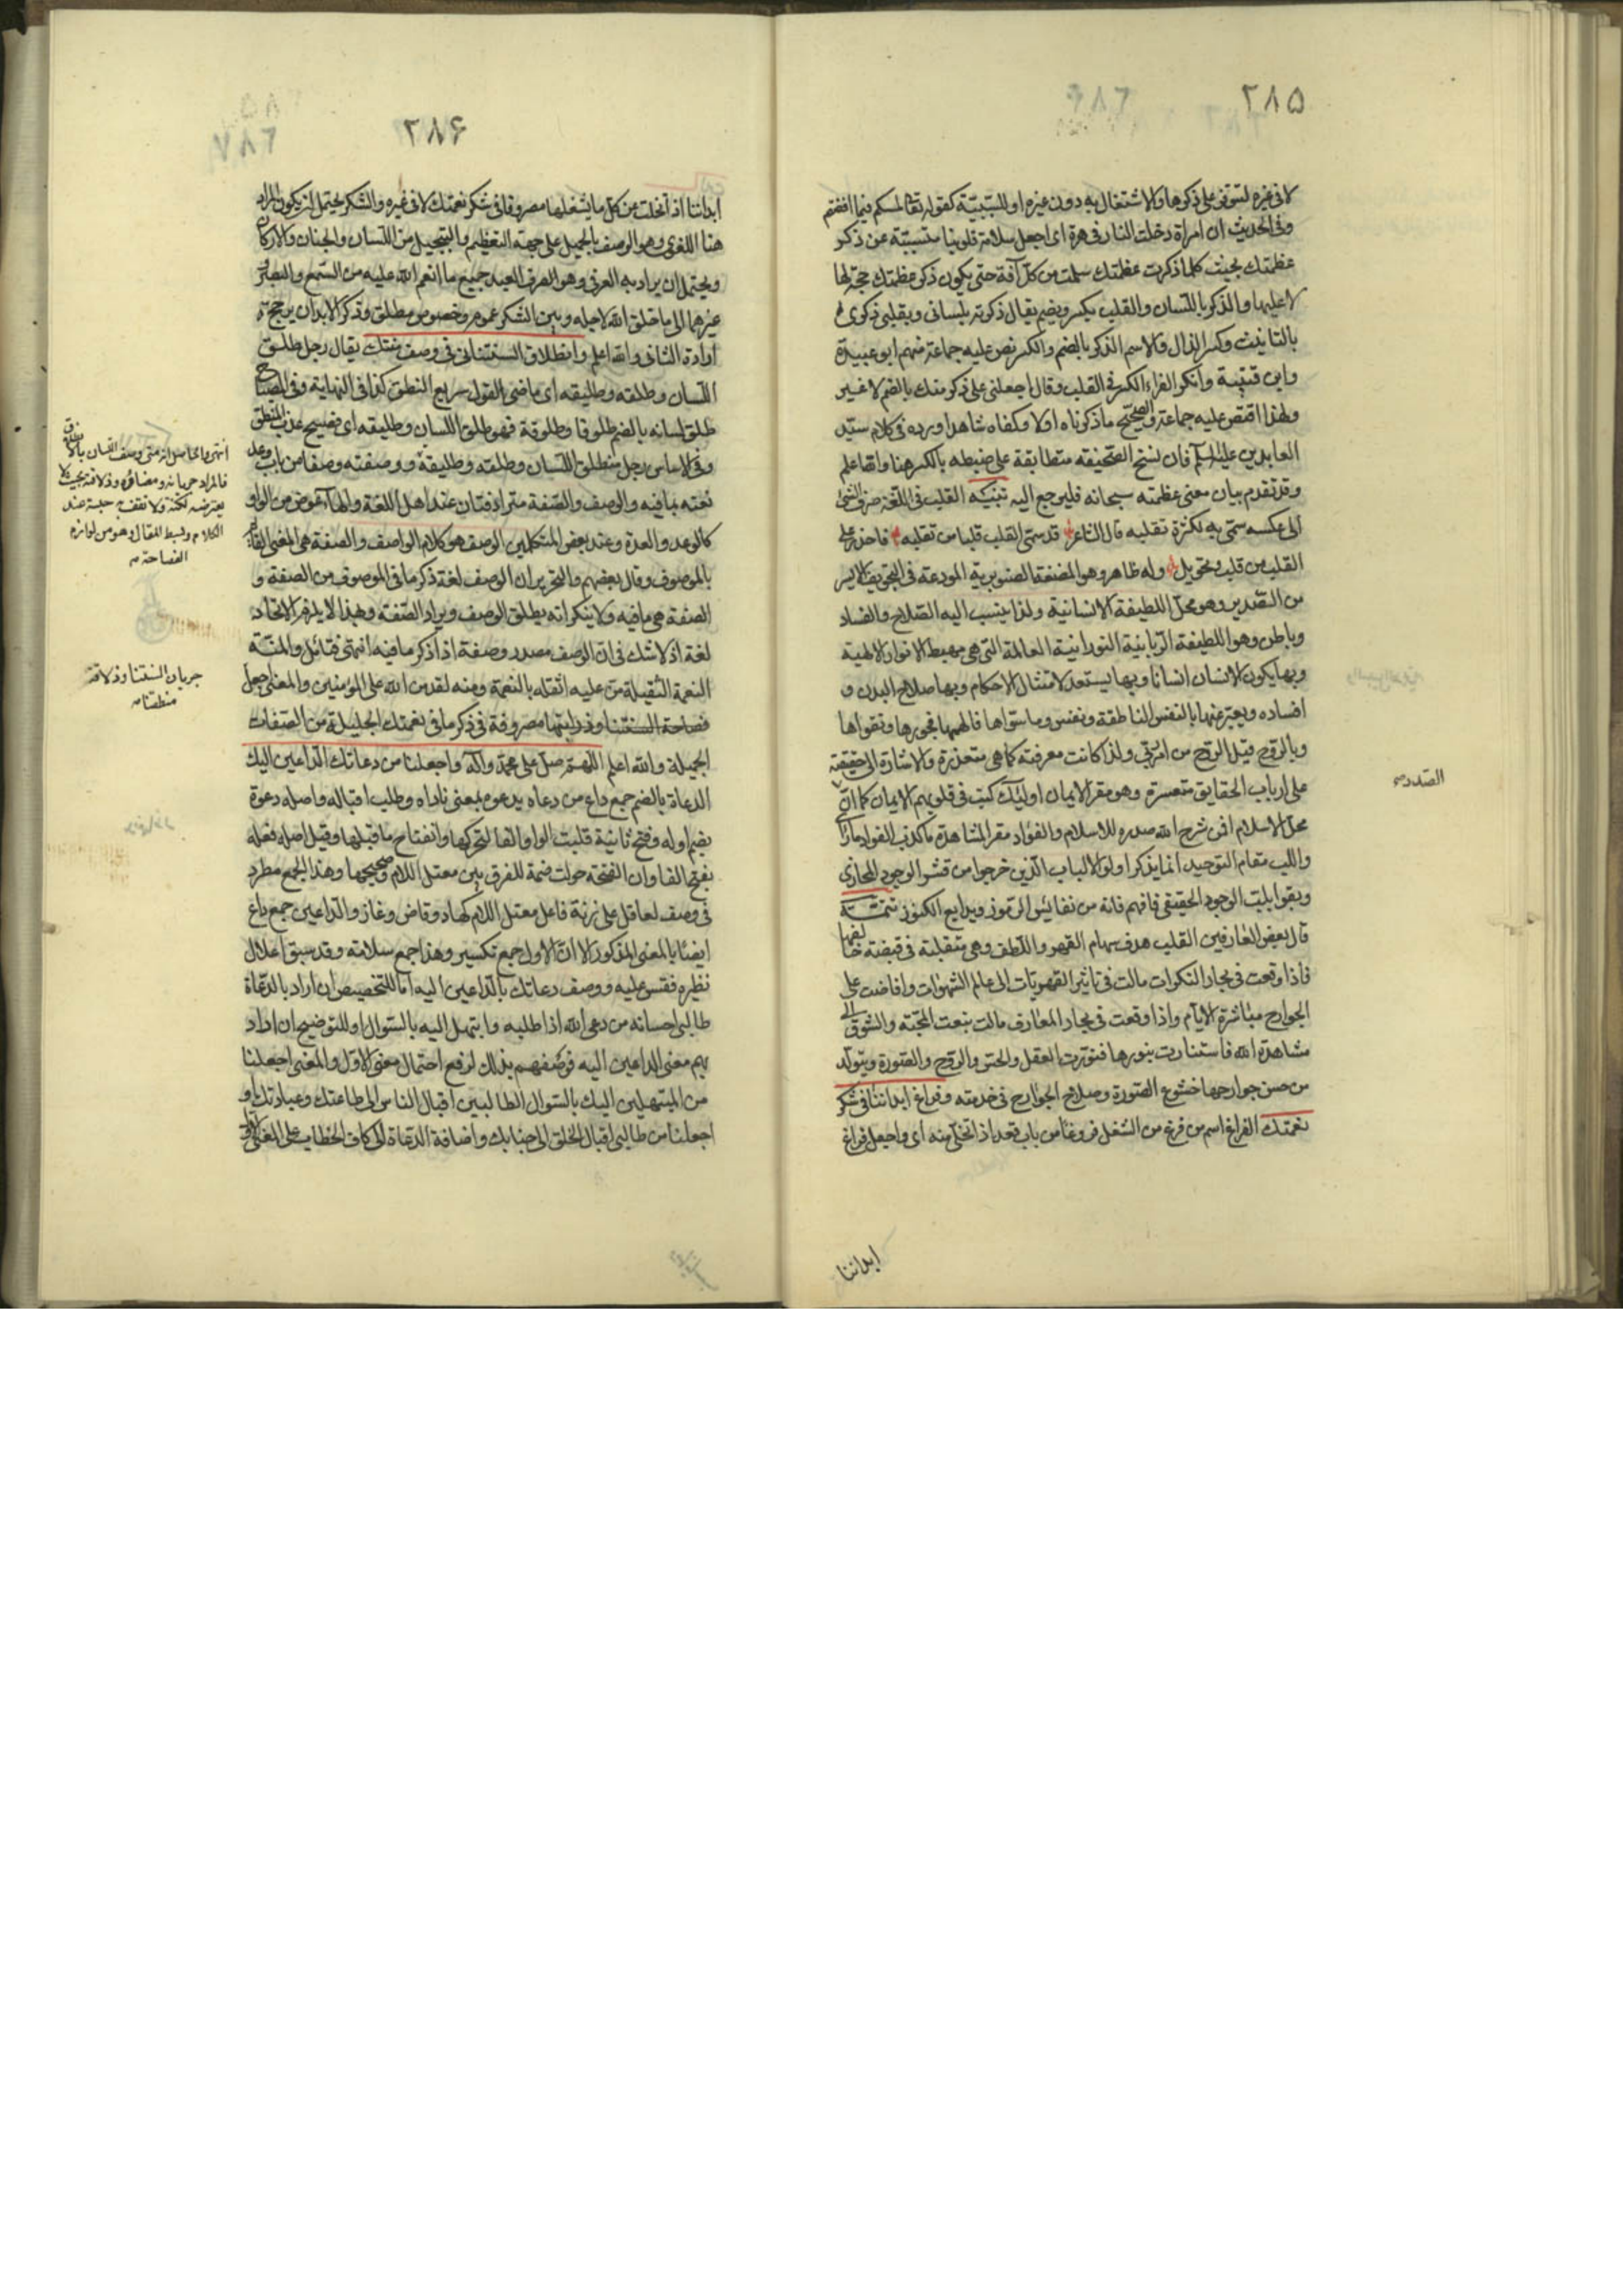 ٢٨٥
لا في غيره لتتوفى على ذكرها والاشتغال به دون غيره او للسببية كقوله تعالى لمسكم فيما افضتم
وفي الحديث ان امراة دخلت النار في هرة اى اجعل سلامة قلوبنا متسببة عن ذكر
عظمتك بحيث كلما ذكرت عظمتك سلمت من كل آفة حتى يكون ذكر عظمتك حجة لها
لا عليها والذكر باللسان والقلب يكسر ويضم يقال ذكرته بلسانى وبقلبى ذكرى
بالتانيث وكسر الذال والاسم الذكر بالضم والكسر نص عليه جماعة منهم ابو عبيدة
وابن قتيبة وانكر الفراء الكسر في القلب وقال اجعلنى على ذكر منك بالضم لا غير
ولهذا اقتصر عليه جماعة والصحيح ما ذكرناه اولا وكفاه شاهدا وروده في كلام سيد
العابدين عليه السلام فان نسخ الصحيفة متطابقة على ضبطه بالكسر هنا والله اعلم
وقد تقدم بيان معنى عظمته سبحانه فليرجع اليه تنبيه القلب في اللغة صرف الشئ
الى عكسه سمى به لكثرة تقلبه قال الشاعر قد سمى القلب قلبا من تقلبه فاحذر على
القلب من قلب وتحويل وله ظاهر وهو المضغة الصنوبرية المودعة في التجويف الايسر
من الصدر وهو محل اللطيفة الانسانية ولذا ينسب اليه الصلاح والفساد
وباطن وهو اللطيفة الربانية النورانية العالمة التى هى مهبط الانوار الالهية
وبها يكون الانسان انسانا وبها يستعد لامتثال الاحكام وبها صلاح البدن و
افساده ويعبر عنها بالنفس الناطقة ونفس وما سواها فالهمها فجورها وتقواها
وبالروح قيل الروح من امر ربى ولذا كانت معرفته كما هى متعذرة والاشارة الى حقيقته
على ارباب الحقايق متعسرة وهو مقر الايمان اولئك كتب في قلوبهم الايمان كما ان
الصدر صح
محل الاسلام افمن شرح الله صدره للاسلام والفؤاد مقر المشاهدة ما كذب الفؤاد ما راى
واللب مقام التوحيد انما يذكر اولو الالباب الذين خرجوا من قشر الوجود المجازى
وبقوا بلب الوجود الحقيقى فافهم فانه من نفائس الرموز وبدايع الكنوز تتمة
قال بعض العارفين القلب هدف سهام القهر واللطف وهى متقلبة في قبضة خالقها
فاذا وقعت في بحار النكرات مالت في تاثير القهريات الى عالم الشهوات وافاضت على
الجوارح مباشرة الآثام واذا وقعت في بحار المعارف مالت بنعت المحبة والشوق الى
مشاهدة الله فاستنارت بنورها فنورت العقل والحس والروح والصورة ويتولد
من حسن جوارحها خشوع الصورة وصلاح الجوارح في خدمته وفراغ ابداننا في شكر
نعمتك الفراغ اسم من فرغ من الشغل فروغا من باب قعد اذا تخلى منه اى واجعل فراغ
ابداننا
٢٨۶
ابداننا اذا تخلت من كل ما يشغلها مصروفا في شكر نعمتك لا في غيره والشكر يحتمل ان يكون المراد
هنا اللغوى وهو الوصف بالجميل على جهة التعظيم والتبجيل من اللسان والجنان والاركان
ويحتمل ان يراد به العرفى وهو صرف العبد جميع ما انعم الله عليه من السمع والبصر
غيرهما الى ما خلق الله لاجله وبين الشكر عموم وخصوص مطلق وذكر الابدان يرجح
ارادة الثانى والله اعلم وانطلاق السنتنا في وصف منتك يقال رجل طلق
اللسان وطلقه وطليقه اى ماضى القول سريع النطق كذا في النهاية وفي المصباح
طلق لسانه بالضم طلوقا وطلوقة فهو طلق اللسان وطليقه اى فصيح عذب المنطق
وفي الاساس رجل منطلق اللسان وطلقه وطليقه ووصفته وصفا من باب وعد
نعته بما فيه والوصف والصفة مترادفتان عند اهل اللغة والهاء عوض من الواو
كالوعد والعدة وعند بعض المتكلمين الوصف هو كلام الواصف والصفة هى المعنى القائم
بالموصوف وقال بعضهم والتحرير ان الوصف لغة ذكر ما في الموصوف من الصفة و
الصفة هى ما فيه ولا ينكر انه يطلق الوصف ويراد الصفة وبهذا لا يلزم الاتحاد
لغة اذ لا شك في ان الوصف مصدر وصفه اذا ذكر ما فيه انتهى فتامل والمنة
النعمة الثقيلة من عليه اثقله بالنعمة ومنه لقد من الله على المؤمنين والمعنى اجعل
فصاحة السنتنا وذرابتها مصروفة في ذكر ما في نعمتك الجليلة من الصفات
الجميلة والله اعلم اللهم صل على محمد وآله واجعلنا من دعاتك الداعين اليك
الدعاة بالضم جمع داع من دعاه يدعوه بمعنى ناداه وطلب اقباله واصله دعوة
بضم اوله وفتح ثانية قلبت الواو الفا لتحركها وانفتاح ما قبلها وقيل اصله فعلة
بفتح الفا وان الفتحة حولت ضمة للفرق بين معتل اللام وصحيحها وهذا الجمع مطرد
في وصف لعاقل على زنة فاعل معتل اللام كهاد وقاض وغاز والداعين جمع داع
ايضا بالمعنى المذكور الا ان الاول جمع تكسير وهذا جمع سلامة وقد سبق اعلال
نظيره فقس عليه ووصف دعاتك بالداعين اليه اما للتخصيص ان اراد بالدعاة
طالبى احسانه من دعى الله اذا طلبه وابتهل اليه بالسؤال او للتوضيح ان اراد
بهم معنى الداعين اليه فوصفهم بذلك لرفع احتمال معنى الاول والمعنى اجعلنا
من المبتهلين اليك بالسؤال الطالبين اقبال الناس الى طاعتك وعبادتك او
اجعلنا من طالبى اقبال الخلق الى جنابك واضافة الدعاة الى كاف الخطاب على المعنى الاول
انتهى والحاصل انه متى وصف اللسان بالانطلاق
فالمراد جريانه ومضاؤه وذلاقته بحيث لا
يعترضه لكنة ولا تقفه حبسة عند
الكلام وبسط المقال وهو من لوازم
الفصاحة منه
جريان السنتنا وذلاقة
منطقنا منه